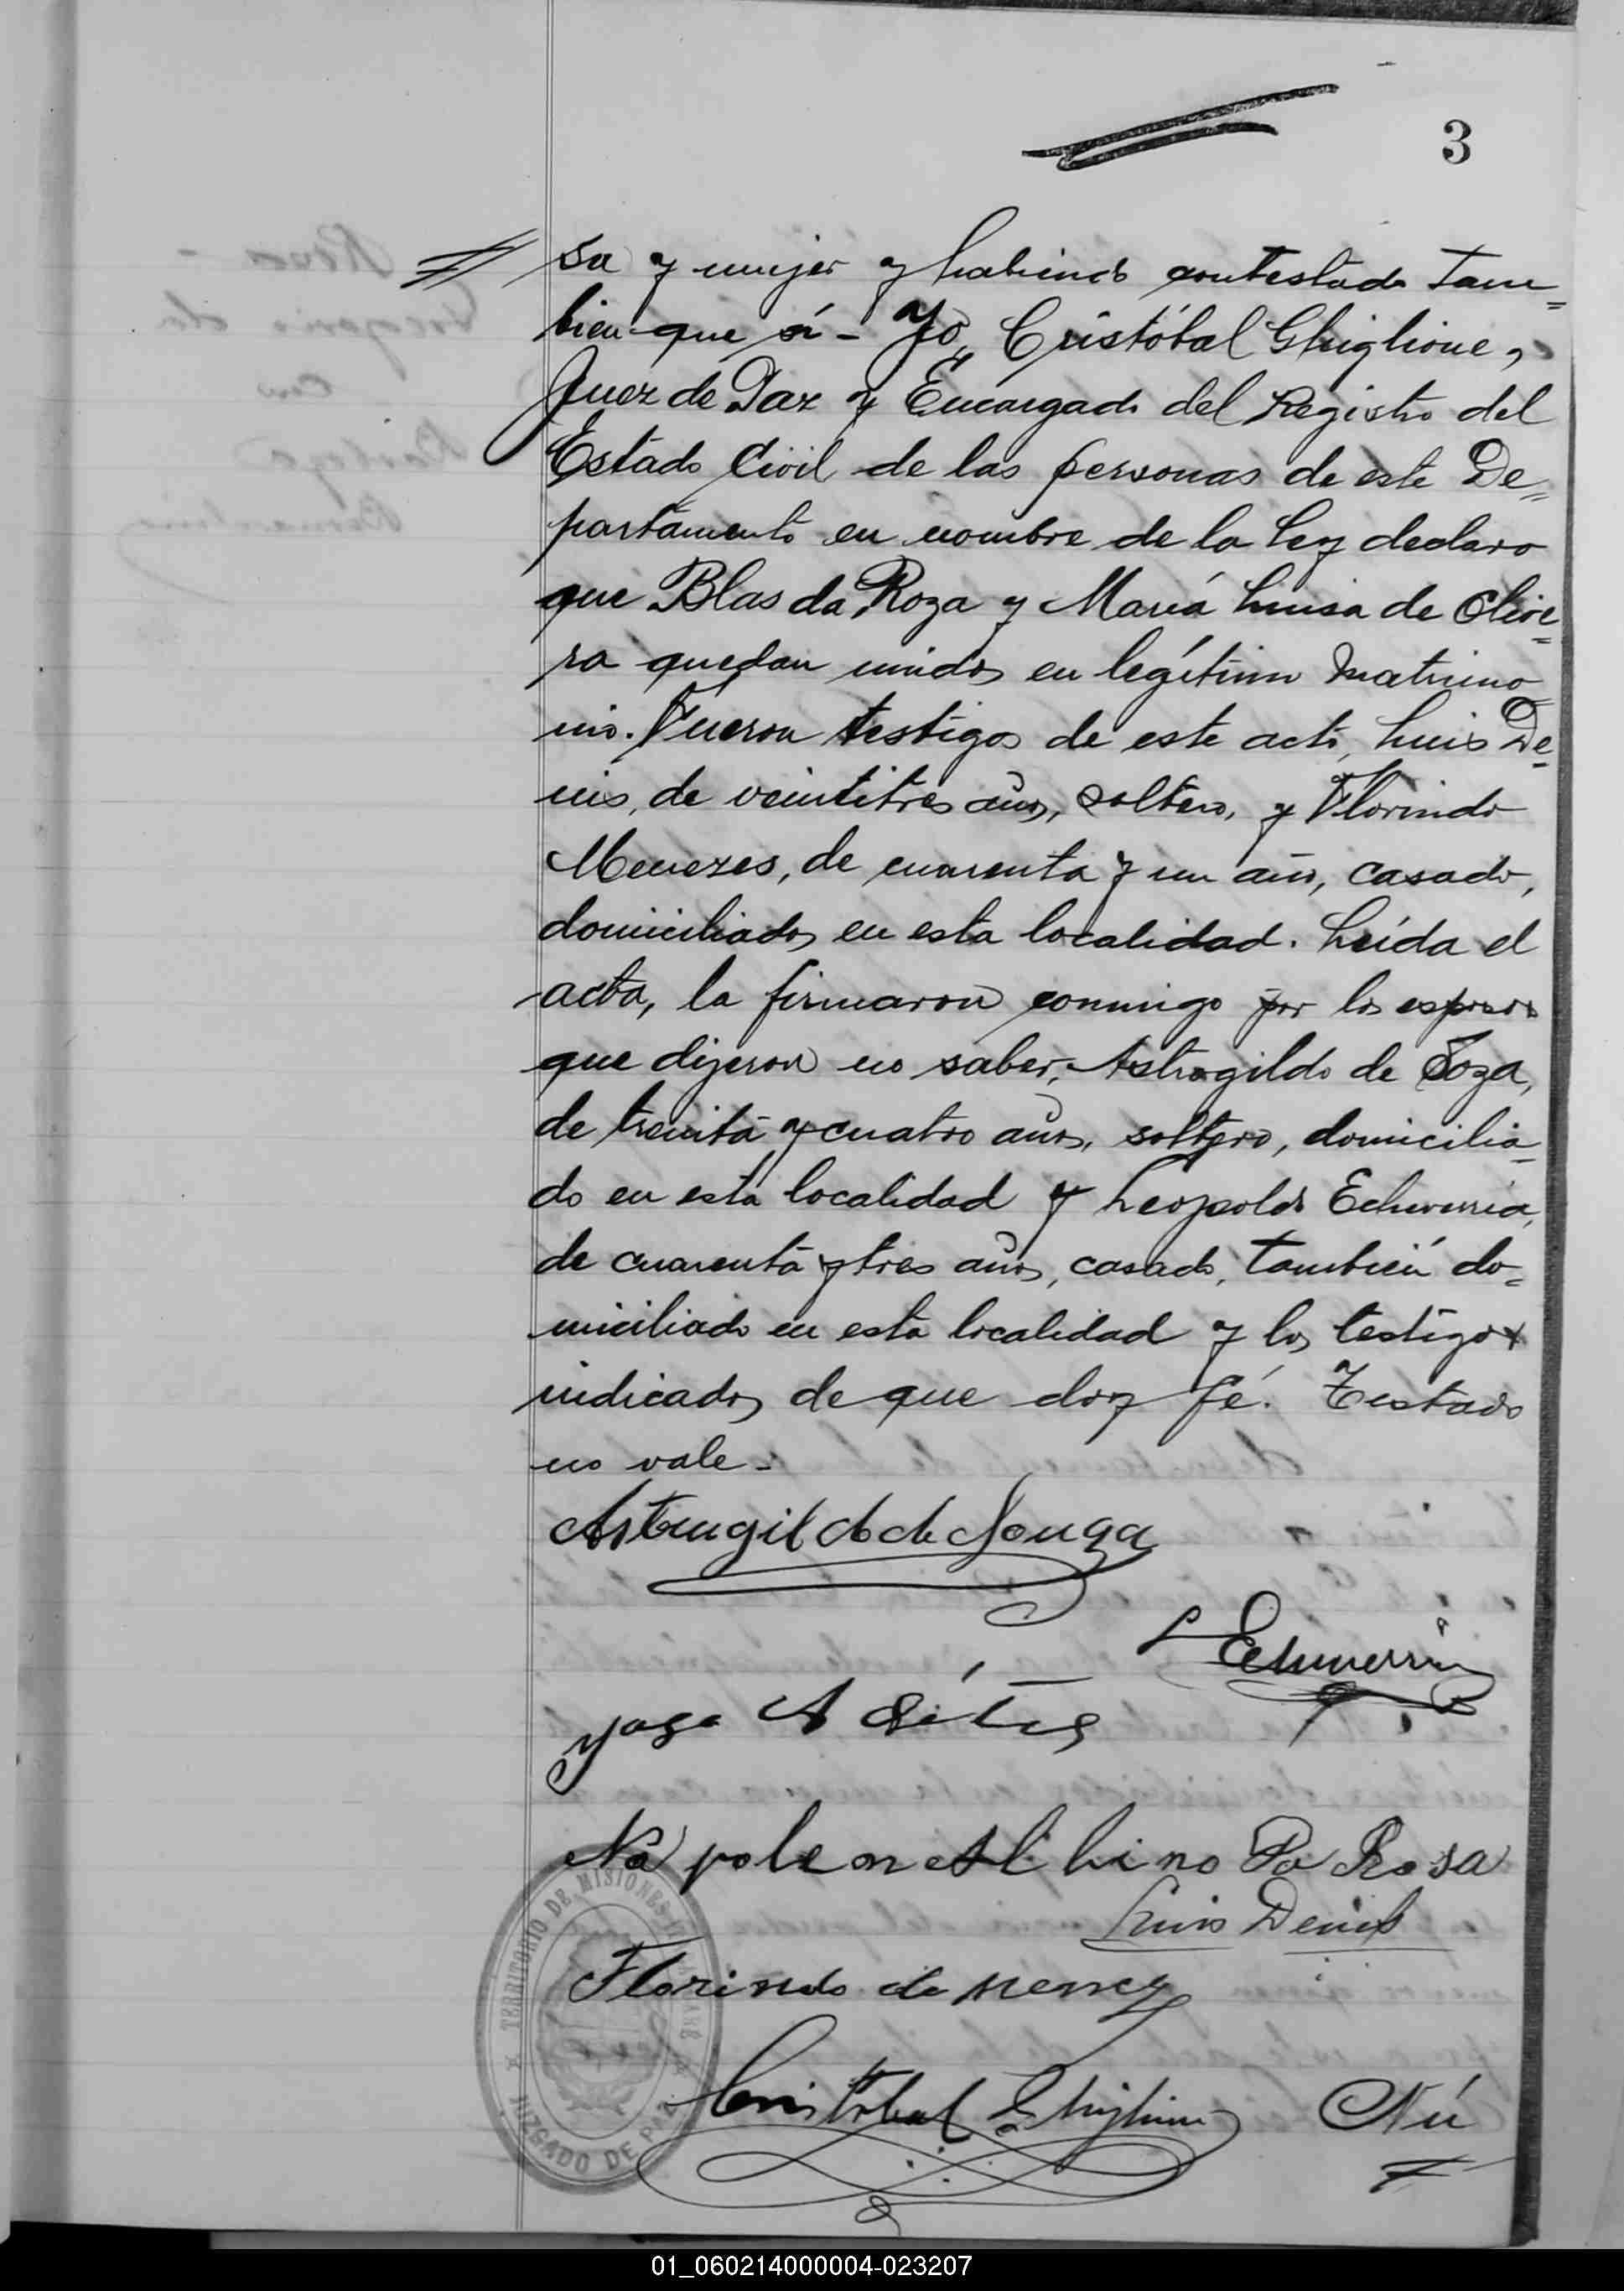 3
sa y mujer y habiendo contestado tam=
bien que sí - Yo, Cristóbal Ghiglione,
Juez de Paz y Encargado del Registro del
Estado Civil de las personas de este De=
partamento en nombre de la ley declaro
que Blas da Roza y María Luisa de Olive=
ra quedan unidos en legítimo matrimo
nio. Fueron testigos de este acto, Luis De=
nis, de veintitres años, soltero, y Florindo
Menezes, de cuarenta y un año, casado,
domiciliados en esta localidad. Leída el
acta, la firmaron conmigo por los esposos
que dijeron no saber, Astrogildo de Soza,
de treinta y cuatro años, soltero, domicilia=
do en esta localidad y Leopoldo Echeverria,
de cuarenta y tres años, casado, también do=
miciliado en esta localidad y los testigos
indicados de que doy fé. Testado
no vale -
Astrugildo de Souza
L Echeverria
A
Napoleon Albino Da Rosa
Luis Denis
Florindo de
TERRITORIO DE MISIONES
JUZGADO DE PAZ
Cristobal Ghiglione
01_060214000004-023207